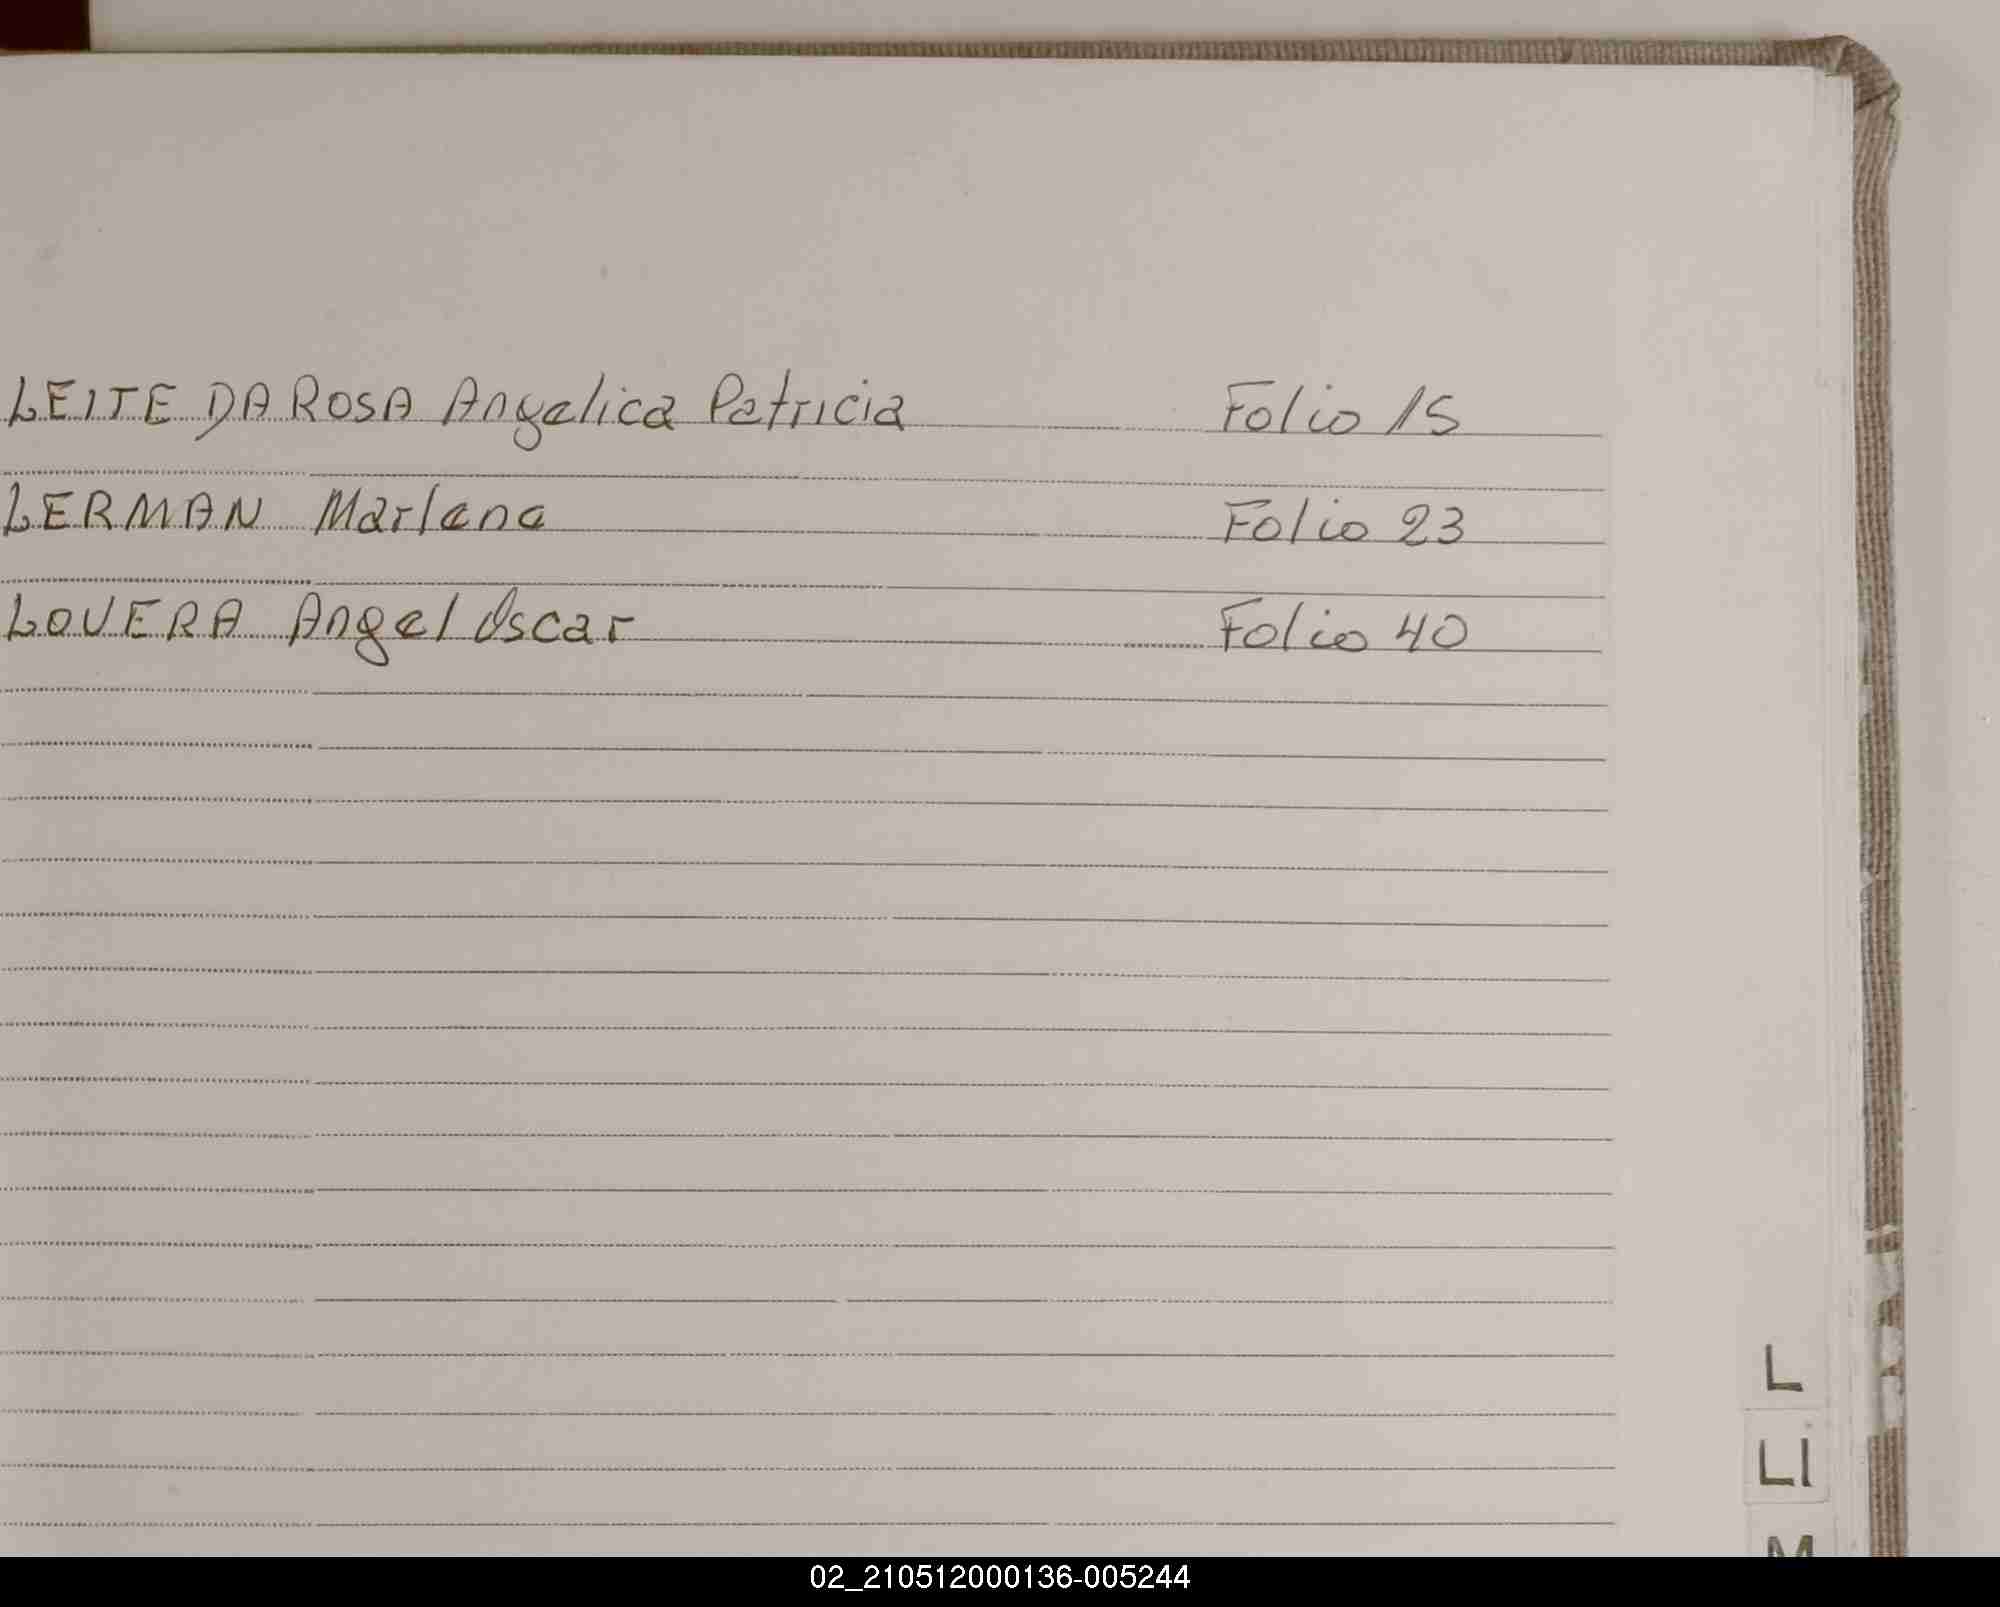 LEITE DA ROSA Angelica Patricia Folio 15
LERMAN Marlene Folio 23
LOVERA Angel Oscar Folio 40
L
Ll
M
02_210512000136-005244